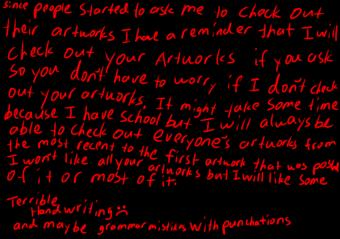 since people started to ask me to check out
their artworks I have a reminder that I will
check out your Artworks if you ask
so you don't have to worry if I don't check
out your artworks. It might take some time
because I have school but I will always be
able to check out everyone's artworks from
the most recent to the first artwork that was posted
I won't like all your artworks but I will like some
of it or most of it.
Terrible
Hand writing :(
and maybe grammar mistakes with punchations